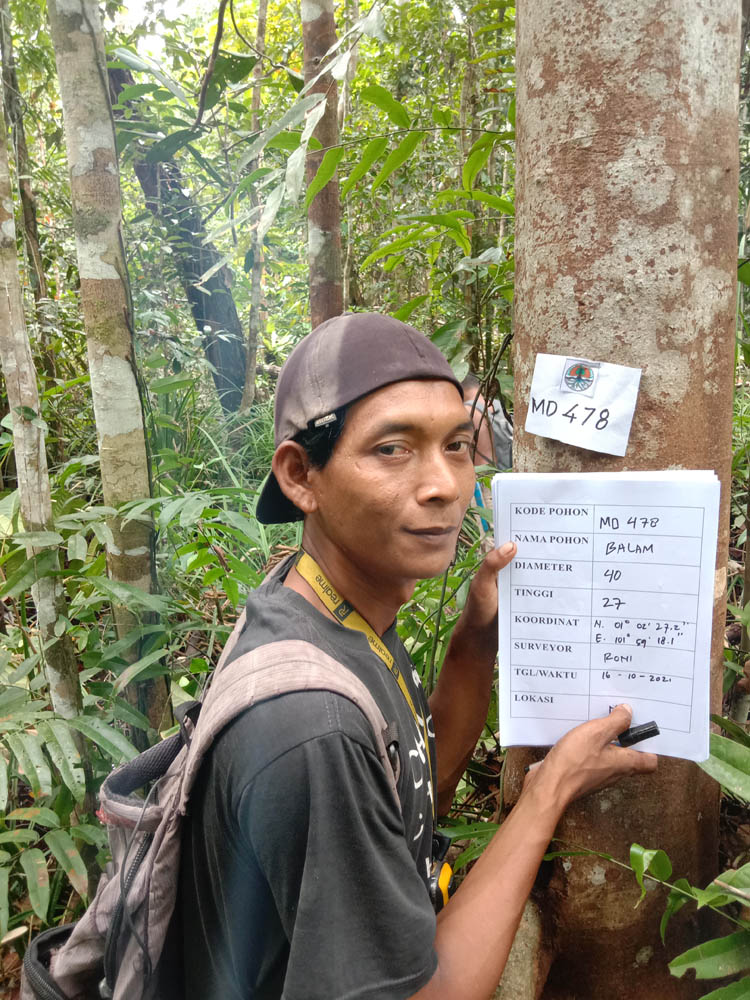 MD 478
KODE POHON MD 478
NAMA POHON BALAM
DIAMETER 40
TINGGI 27
KOORDINAT N. 01° 02' 27.2"
E. 101° 59' 18.1"
SURVEYOR RONI
TGL/WAKTU 16 - 10 - 2021
LOKASI
realme